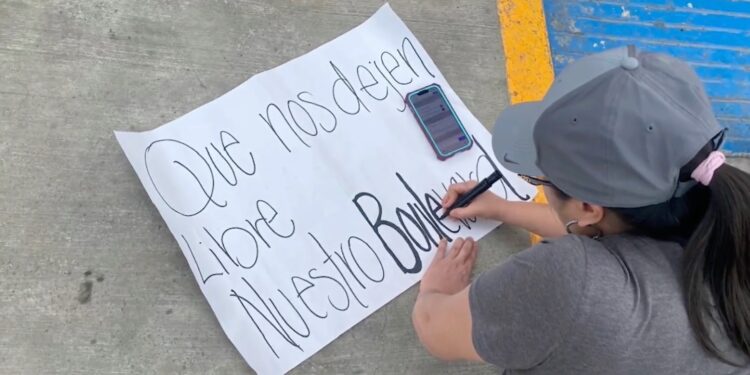 Que nos dejen
Libre
Nuestro Boulevard